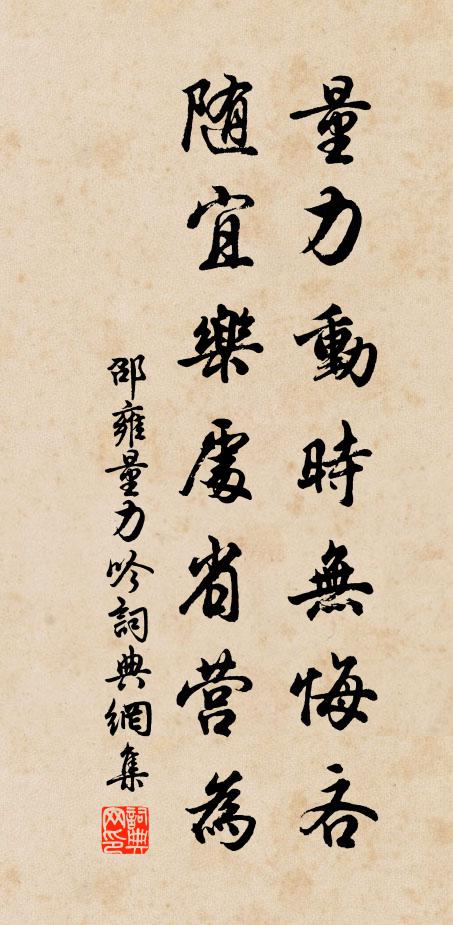 量力動時無悔吝
随宜樂處省营為
邵雍量力吟詞典網集
詞典網印